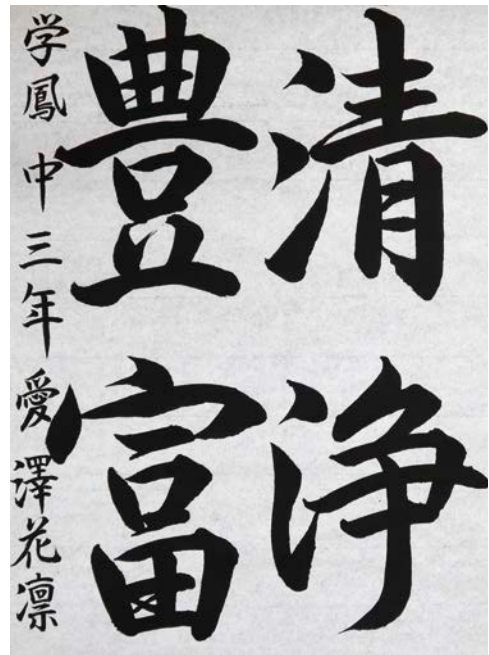 清浄
豊富
学鳳中三年愛澤花凛